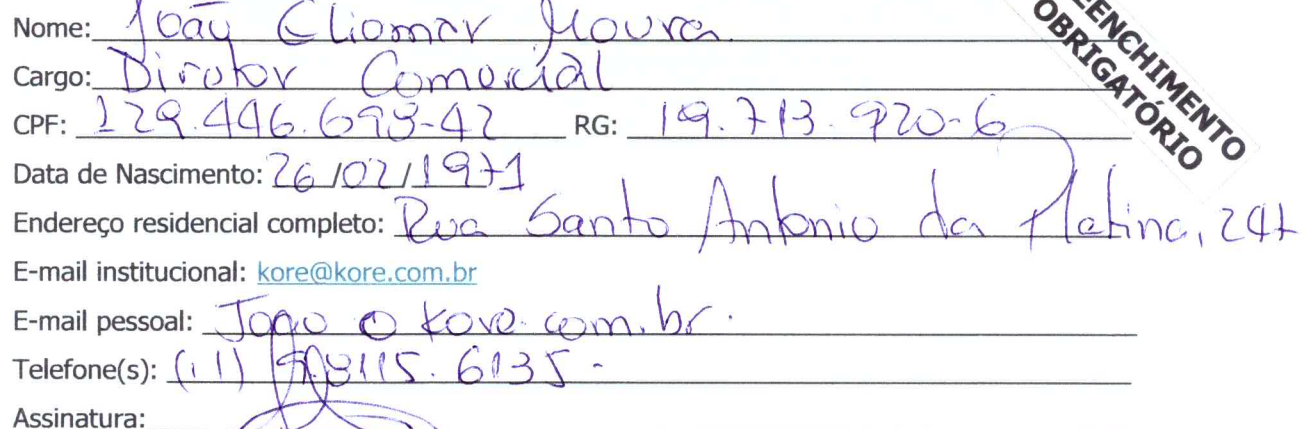 Nome: João Cliomar Moura
Cargo: Diretor Comercial
CPF: 129.446.698-42 RG: 19.713.920-6
Data de Nascimento: 26/02/1971
Endereço residencial completo: Rua Santo Antonio da Platina, 247
E-mail institucional: kore@kore.com.br
E-mail pessoal: Joao@kore.com.br.
Telefone(s): (11) 98115.6135-
Assinatura:
OBRIGATÓRIO